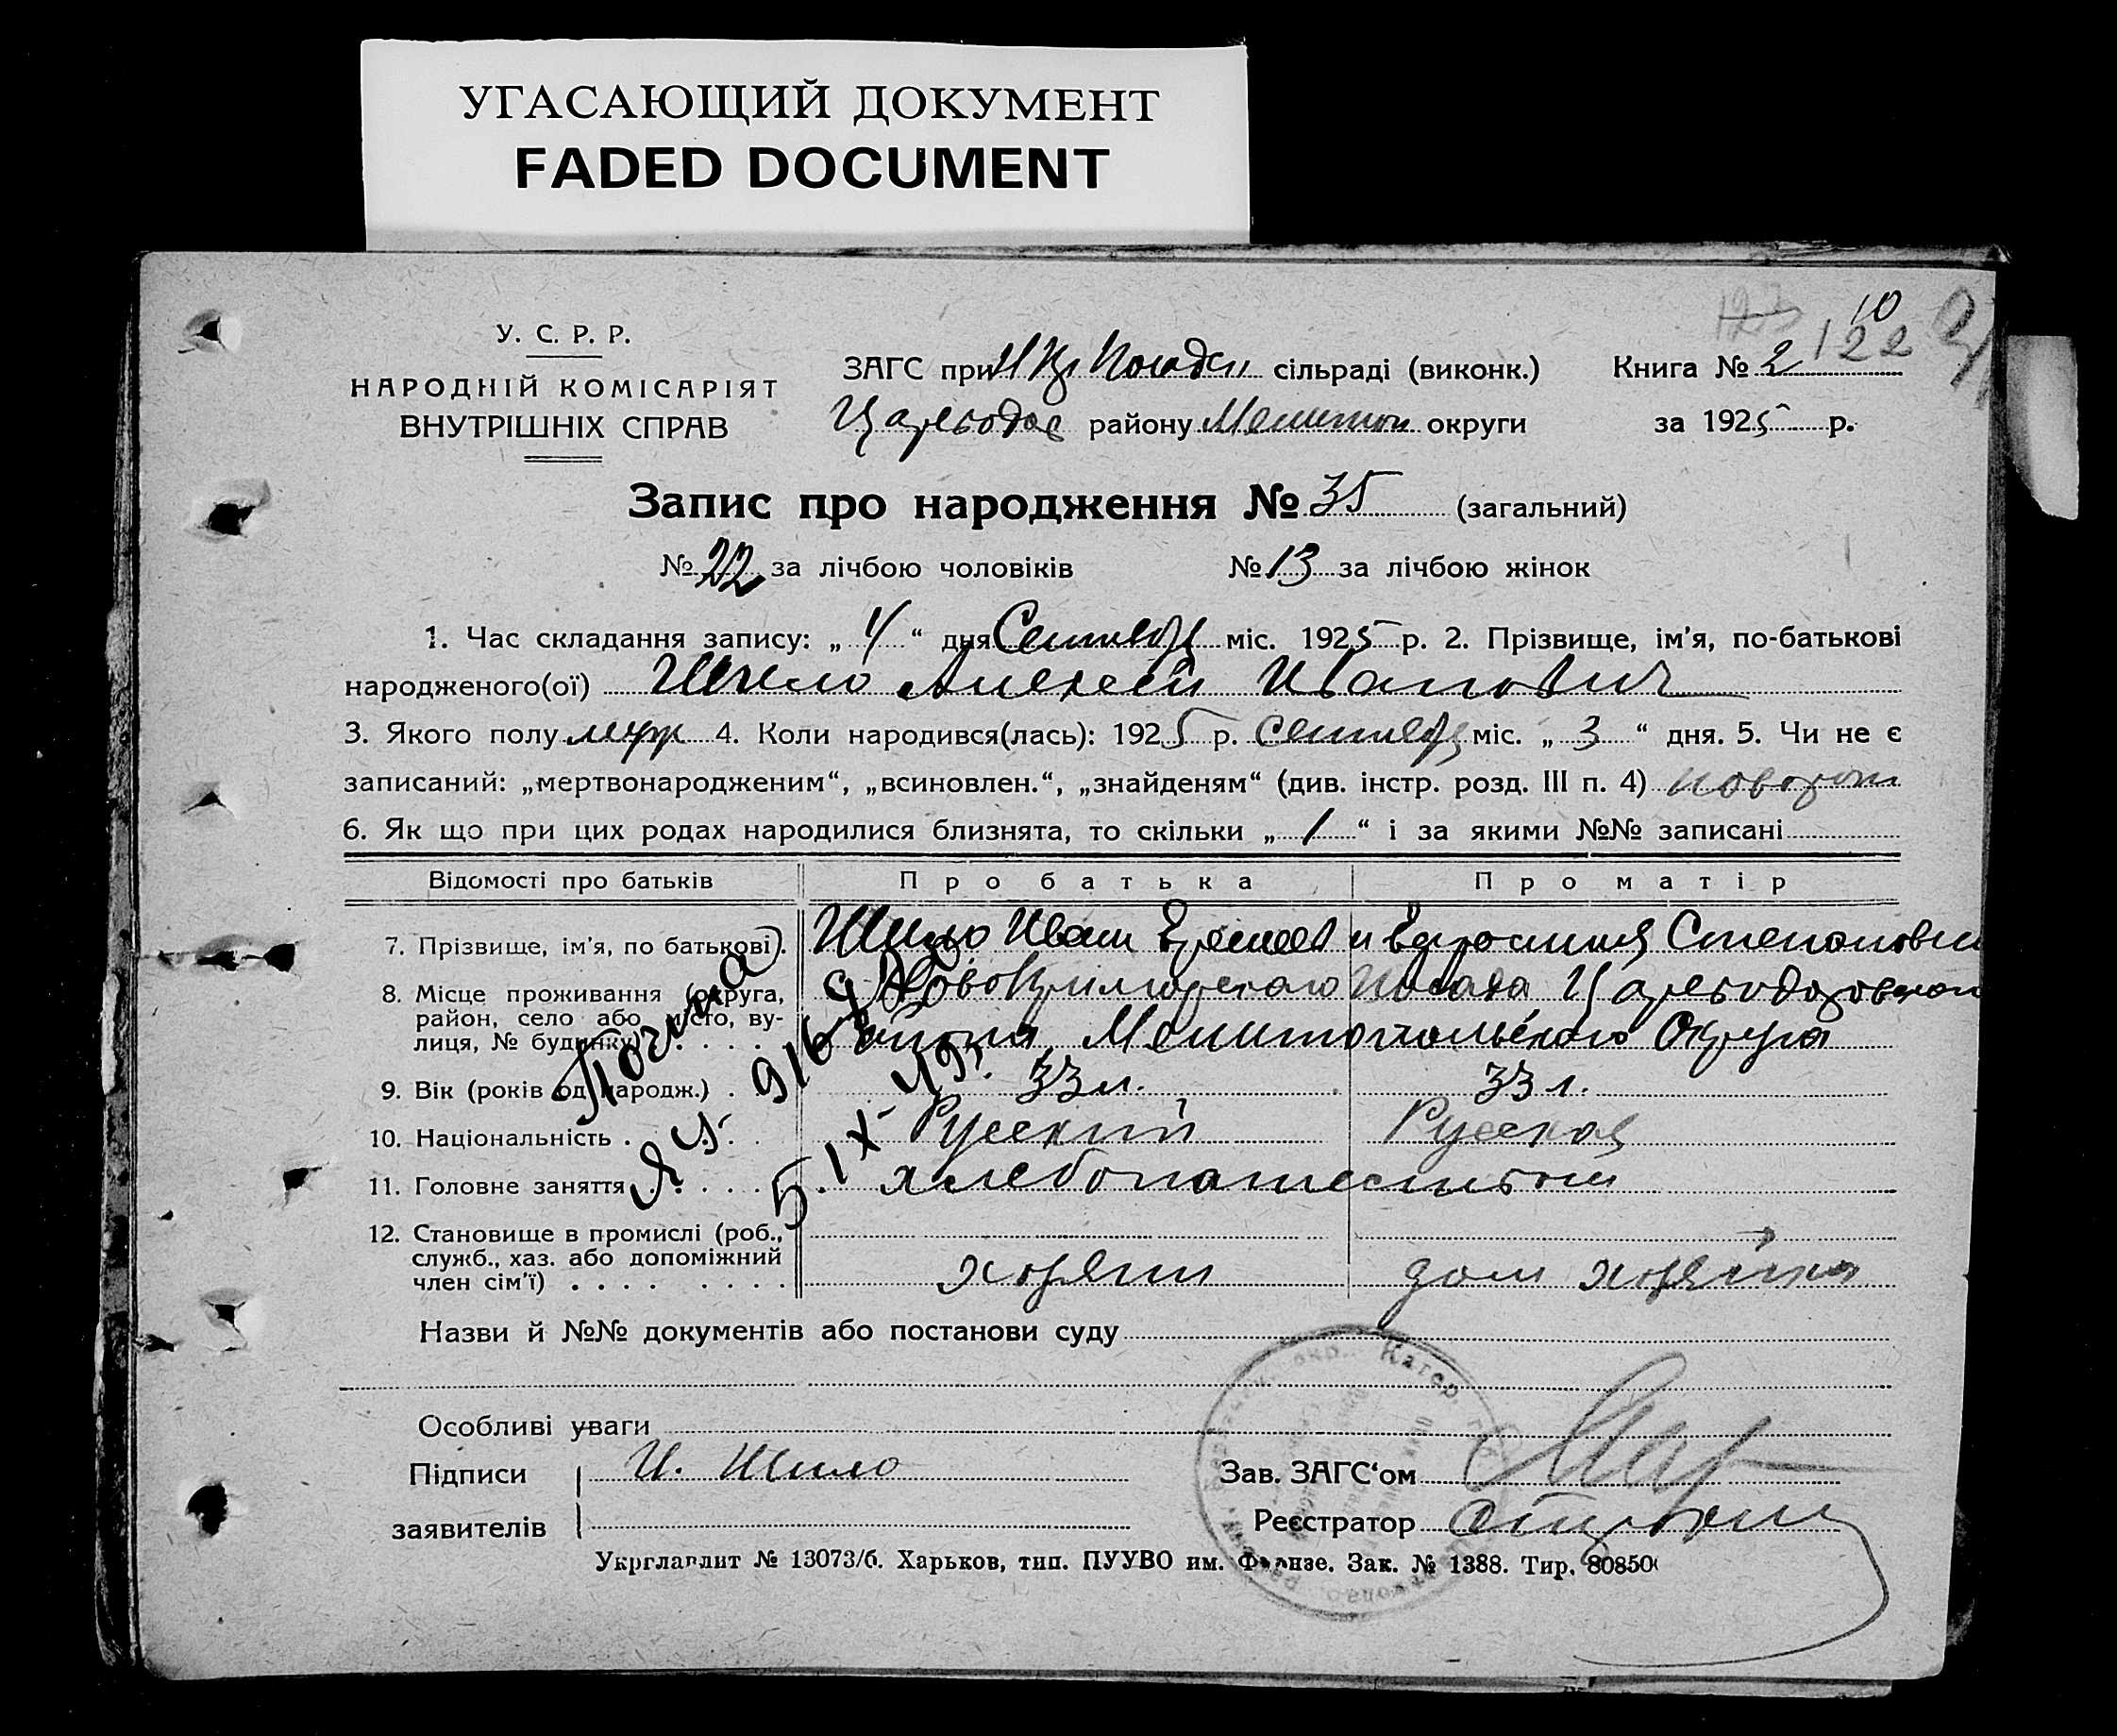 УГАСАЮЩИЙ ДОКУМЕНТ
FADED DOCUMENT
10
122
У. С. Р. Р.
НАРОДНІЙ КОМІСАРІЯТ
ВНУТРІШНІХ СПРАВ
ЗАГС при сільраді (виконк.)
Книга № 2
району Мелитоп округи
за 1925 р.
Запис про народження № 35 (загальний)
№ 22 за лічбою чоловіків № 13 за лічбою жінок
1. Час складання запису: „ 4 “ дня Сентября міс. 1925 р. 2. Прізвище, ім'я, по-батькові
народженого(ої) Шило Алексей Иванович
3. Якого полу муж 4. Коли народився(лась): 1925 р. Сентября міс. „ 3 “ дня. 5. Чи не є
записаний: „мертвонародженим“, „всиновлен.“, „знайденям“ (див. інстр. розд. III п. 4)
6. Як що при цих родах народилися близнята, то скільки „ 1 “ і за якими №№ записані
Відомості про батьків Про батька Про матір
7. Прізвище, ім'я, по батькові . Шило Иван и Ефросиния Степановна
8. Місце проживання (округа, район, село або місто, ву-
лиця, № будинку) . . . . Района Мелитопольского Округа
9. Вік (років од народж.) . 33 л. 33 л.
10. Національність . . . . Русский Русская
11. Головне заняття . . . . хлебопашеством
12. Становище в промислі (роб.,
служб., хаз. або допоміжний
член сім'ї) . . . . . . . . хозяин дом хозяйка
Назви й №№ документів або постанови суду
Особливі уваги
Підписи И. Шило
Зав. ЗАГС‘ом
заявителів
Реєстратор
Укрглавлит № 13073/б. Харьков, тип. ПУУВО им. Фрунзе. Зак. № 1388. Тир. 80850